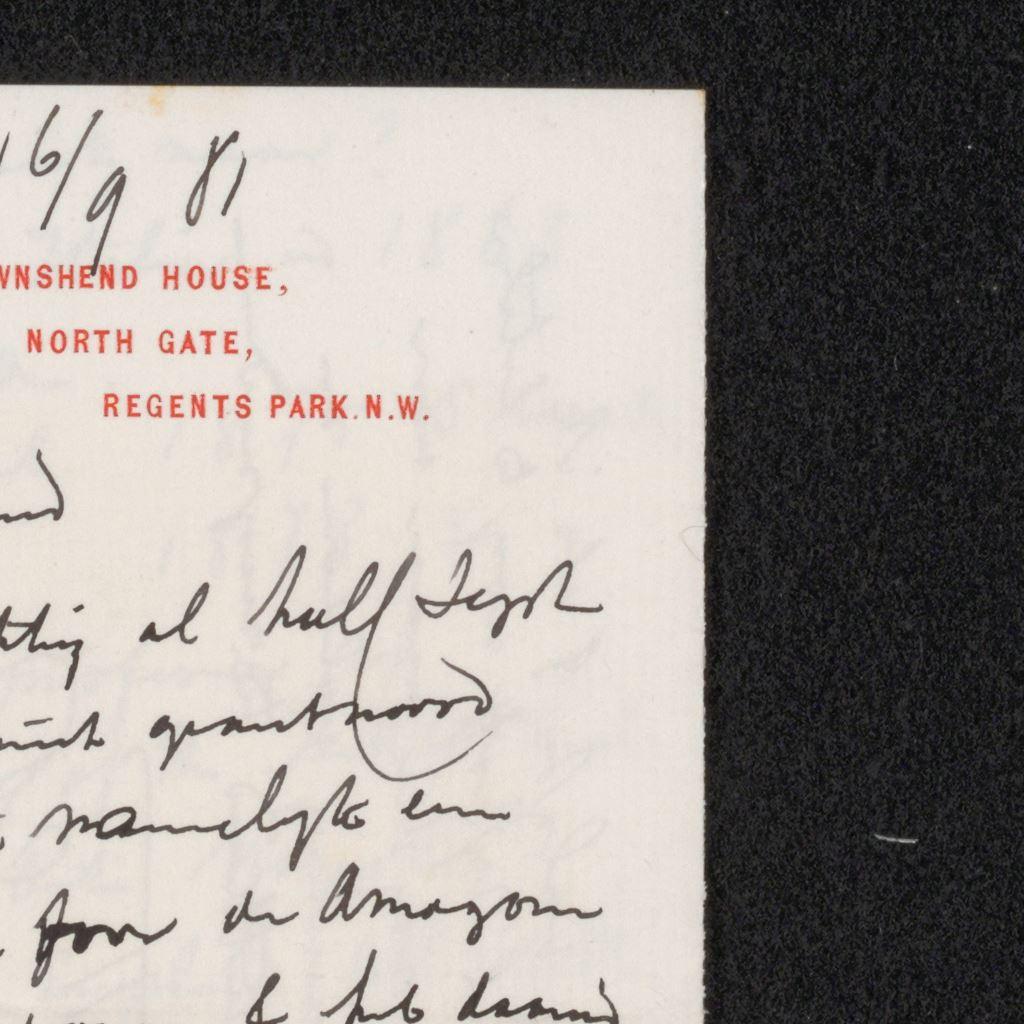 16/9 81
WNSHEND HOUSE,
NORTH GATE,
REGENTS PARK.N.W.
al half Sept
geantwoord
namelyk een
foor de Amazone
& heb daarin